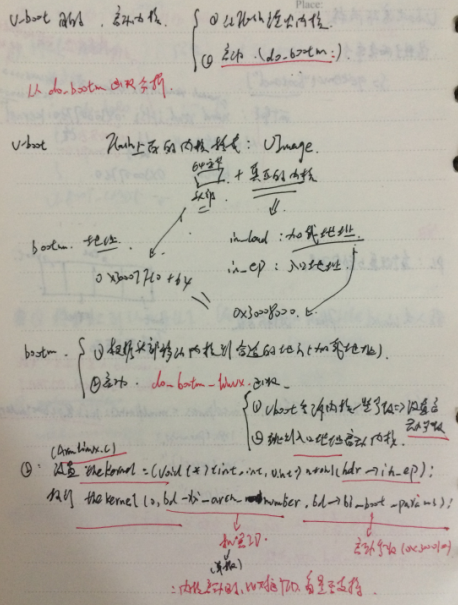 Place:
u-boot 目的. 启动内核. ① 从Flash读出内核.
② 启动. (do_bootm.)
从 do_bootm 函数分析.
u-boot Flash上存的内核格式: uImage.
64字节 头部 + 真正的内核
bootm. 地址 ih_load: 加载地址.
0x30007FC0 + 64 ih_ep: 入口地址.
= 0x30008000.
bootm. ① 根据头部移动内核到合适的地方(加载地址).
② 启动. do_bootm_linux. 函数.
① Uboot告诉内核一些参数 => 设置启动参数
② 跳到入口地址启动内核.
(Armlinux.c)
② 设置 thekernel = (void (*)(int, int, uint)) ntohl(hdr->ih_ep);
执行 thekernel (0, bd->bi_arch_number, bd->bi_boot_params);
机器ID. 启动参数
(参数)
内核启动时, 看是否支持.